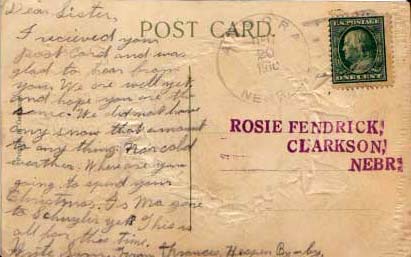 Dear Sister,
I recieved your
post card and was
glad to hear from
you. We are well yet
and hope you are the
same. We did not have
any snow that amount
to any thing. Nor cold
weather. Where are you
going to spend your
Christmas. Is Ma gone
to Schuyler yet. This is
all for this time.
Write soon. From Frances,
POST CARD.
U.S. POSTAGE
ONE CENT
ROSIE FENDRICK,
CLARKSON,
NEBR.